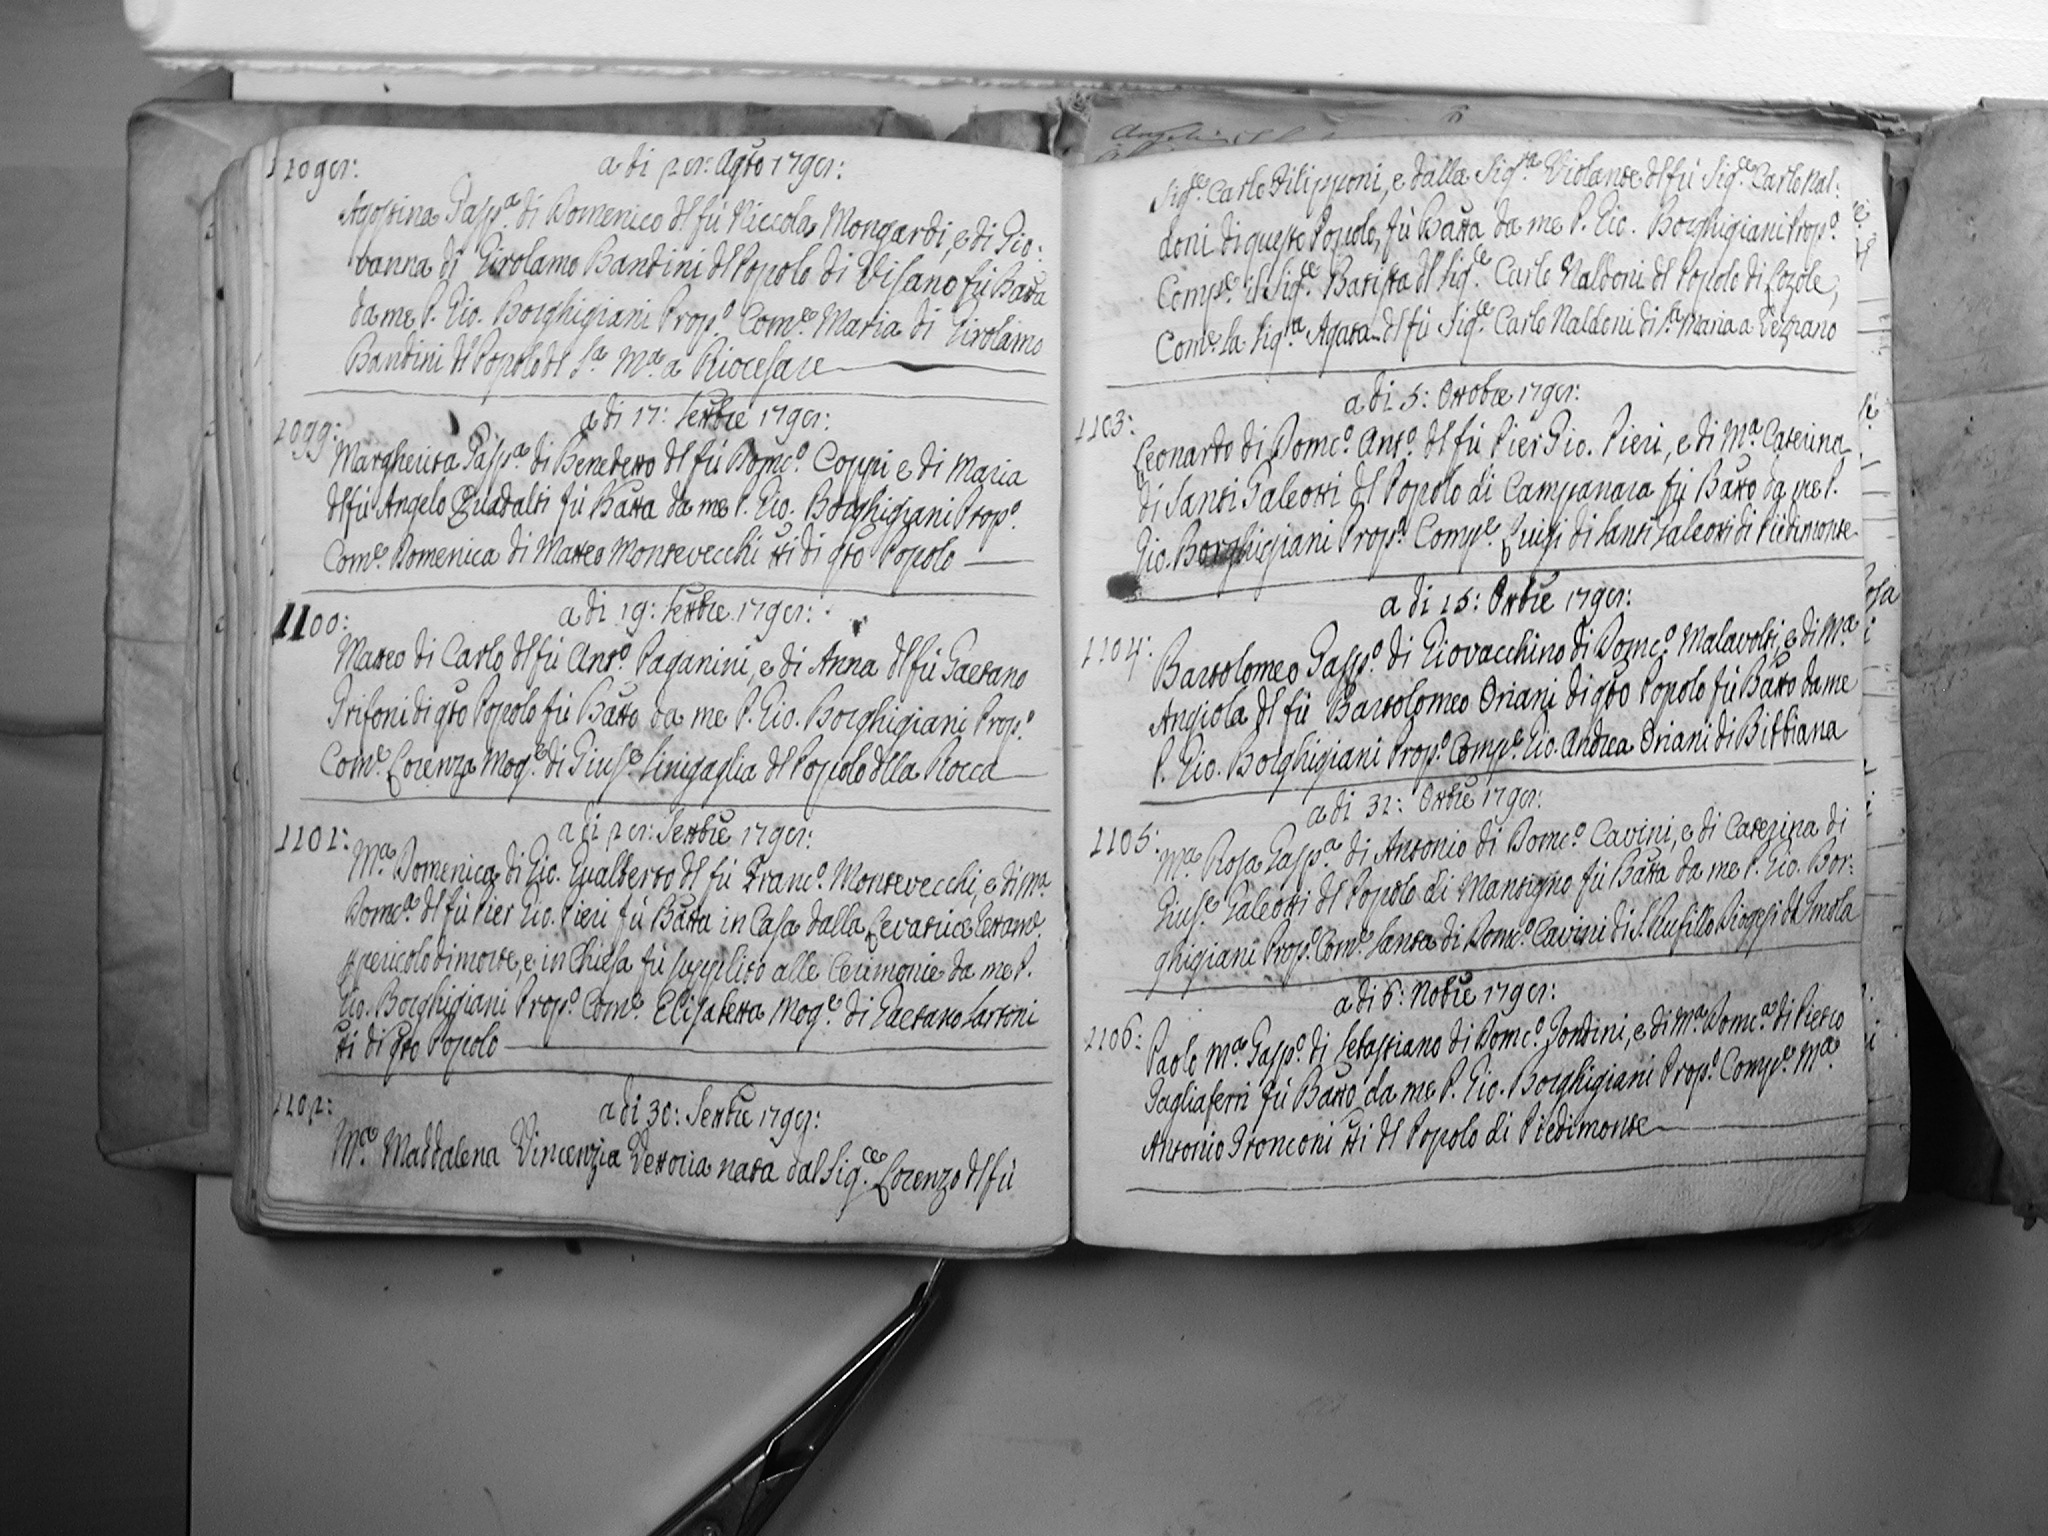 a di 28: Agto 1798:
Agostina Gasp.a di Domenico del fù Niccola Mongardi, e di Gio:
vanna di Girolamo Bandini del Popolo di Visano fù Batta
da me P. Gio. Borghigiani Prop.o Com.e Maria di Girolamo
Bandini del Popolo di S.a M.a a Riocesare
1099:
a di 17: Settbre 1798:
Margherita Gasp.a di Benedetto del fù Dom.co Coppi e di Maria
del fù Angelo Quadalti fù Batta da me P. Gio. Borghigiani Prop.o
Com.e Domenica di Matteo Montevecchi tti di qto Popolo
1100:
a di 19: Settbre 1798:
Matteo di Carlo del fù Ant.o Paganini, e di Anna del fù Gaetano
Grifoni di qto Popolo fù Batto da me P. Gio. Borghigiani Prop.o
Com.e Lorenza Mog.e di Gius.e Sinigaglia del Popolo della Rocca
1101:
a di 28: Settbre 1798:
M.a Domenica di Gio. Gualberto del fù Franc.o Montevecchi, e di M.a
Dom.ca del fù Pier Gio. Pieri fù Batta in Casa dalla Levatrice
pericolo di morte, e in Chiesa fù supplito alle Cerimonie da me P.
Gio. Borghigiani Prop.o Com.e Elisabetta Mog.e di Gaetano Sartoni
tti di qto Popolo
1102:
a di 30: Settbre 1798:
M.a Maddalena Vincenzia Vettoria nata dal Sig.re Lorenzo del fù
Sig.re Carlo Filipponi, e dalla Sig.ra Violante del fù Sig.re Carlo Nal-
doni di questo Popolo, fù Batta da me P. Gio. Borghigiani Prop.o
Comp.e il Sig.re Batista del Sig.re Carlo Naldoni del Popolo di Lozole,
Com.e la Sig.ra Agata del fù Sig.re Carlo Naldoni di S.a Maria a Vezzano
1103:
a di 5: Ottobre 1798:
Leonardo di Dom.co Ant.o del fù Pier Gio. Pieri, e di M.a Caterina
di Santi Galeotti del Popolo di Campanara fù Batto da me P.
Gio. Borghigiani Prop.o Comp.e Luigi di Santi Galeotti di Piedimonte
a di 15: Ottbre 1798:
1104:
Bartolomeo Gasp.o di Giovacchino di Dom.co Malavolti, e di M.a
Angiola del fù Bartolomeo Oriani di qto Popolo fù Batto da me
P. Gio. Borghigiani Prop.o Comp.e Gio. Andrea Oriani di Bibbiana
a di 31: Ottbre 1798:
1105:
M.a Rosa Gasp.a di Antonio di Dom.co Cavini, e di Caterina di
Gius.e Galeotti del Popolo di Mantigno fù Batta da me P. Gio. Bor-
ghigiani Prop.o Com.e Santa di Dom.co Cavini di S. Ruffillo Diogesi d'Imola
a di 6: Nobre 1798:
1106:
Paolo M.a Gasp.o di Sebastiano di Dom.co Fondini, e di M.a Dom.ca di Pietro
Tagliaferri fù Batto da me P. Gio. Borghigiani Prop.o Comp.e M.a
Antonio Tronconi tti del Popolo di Piedimonte